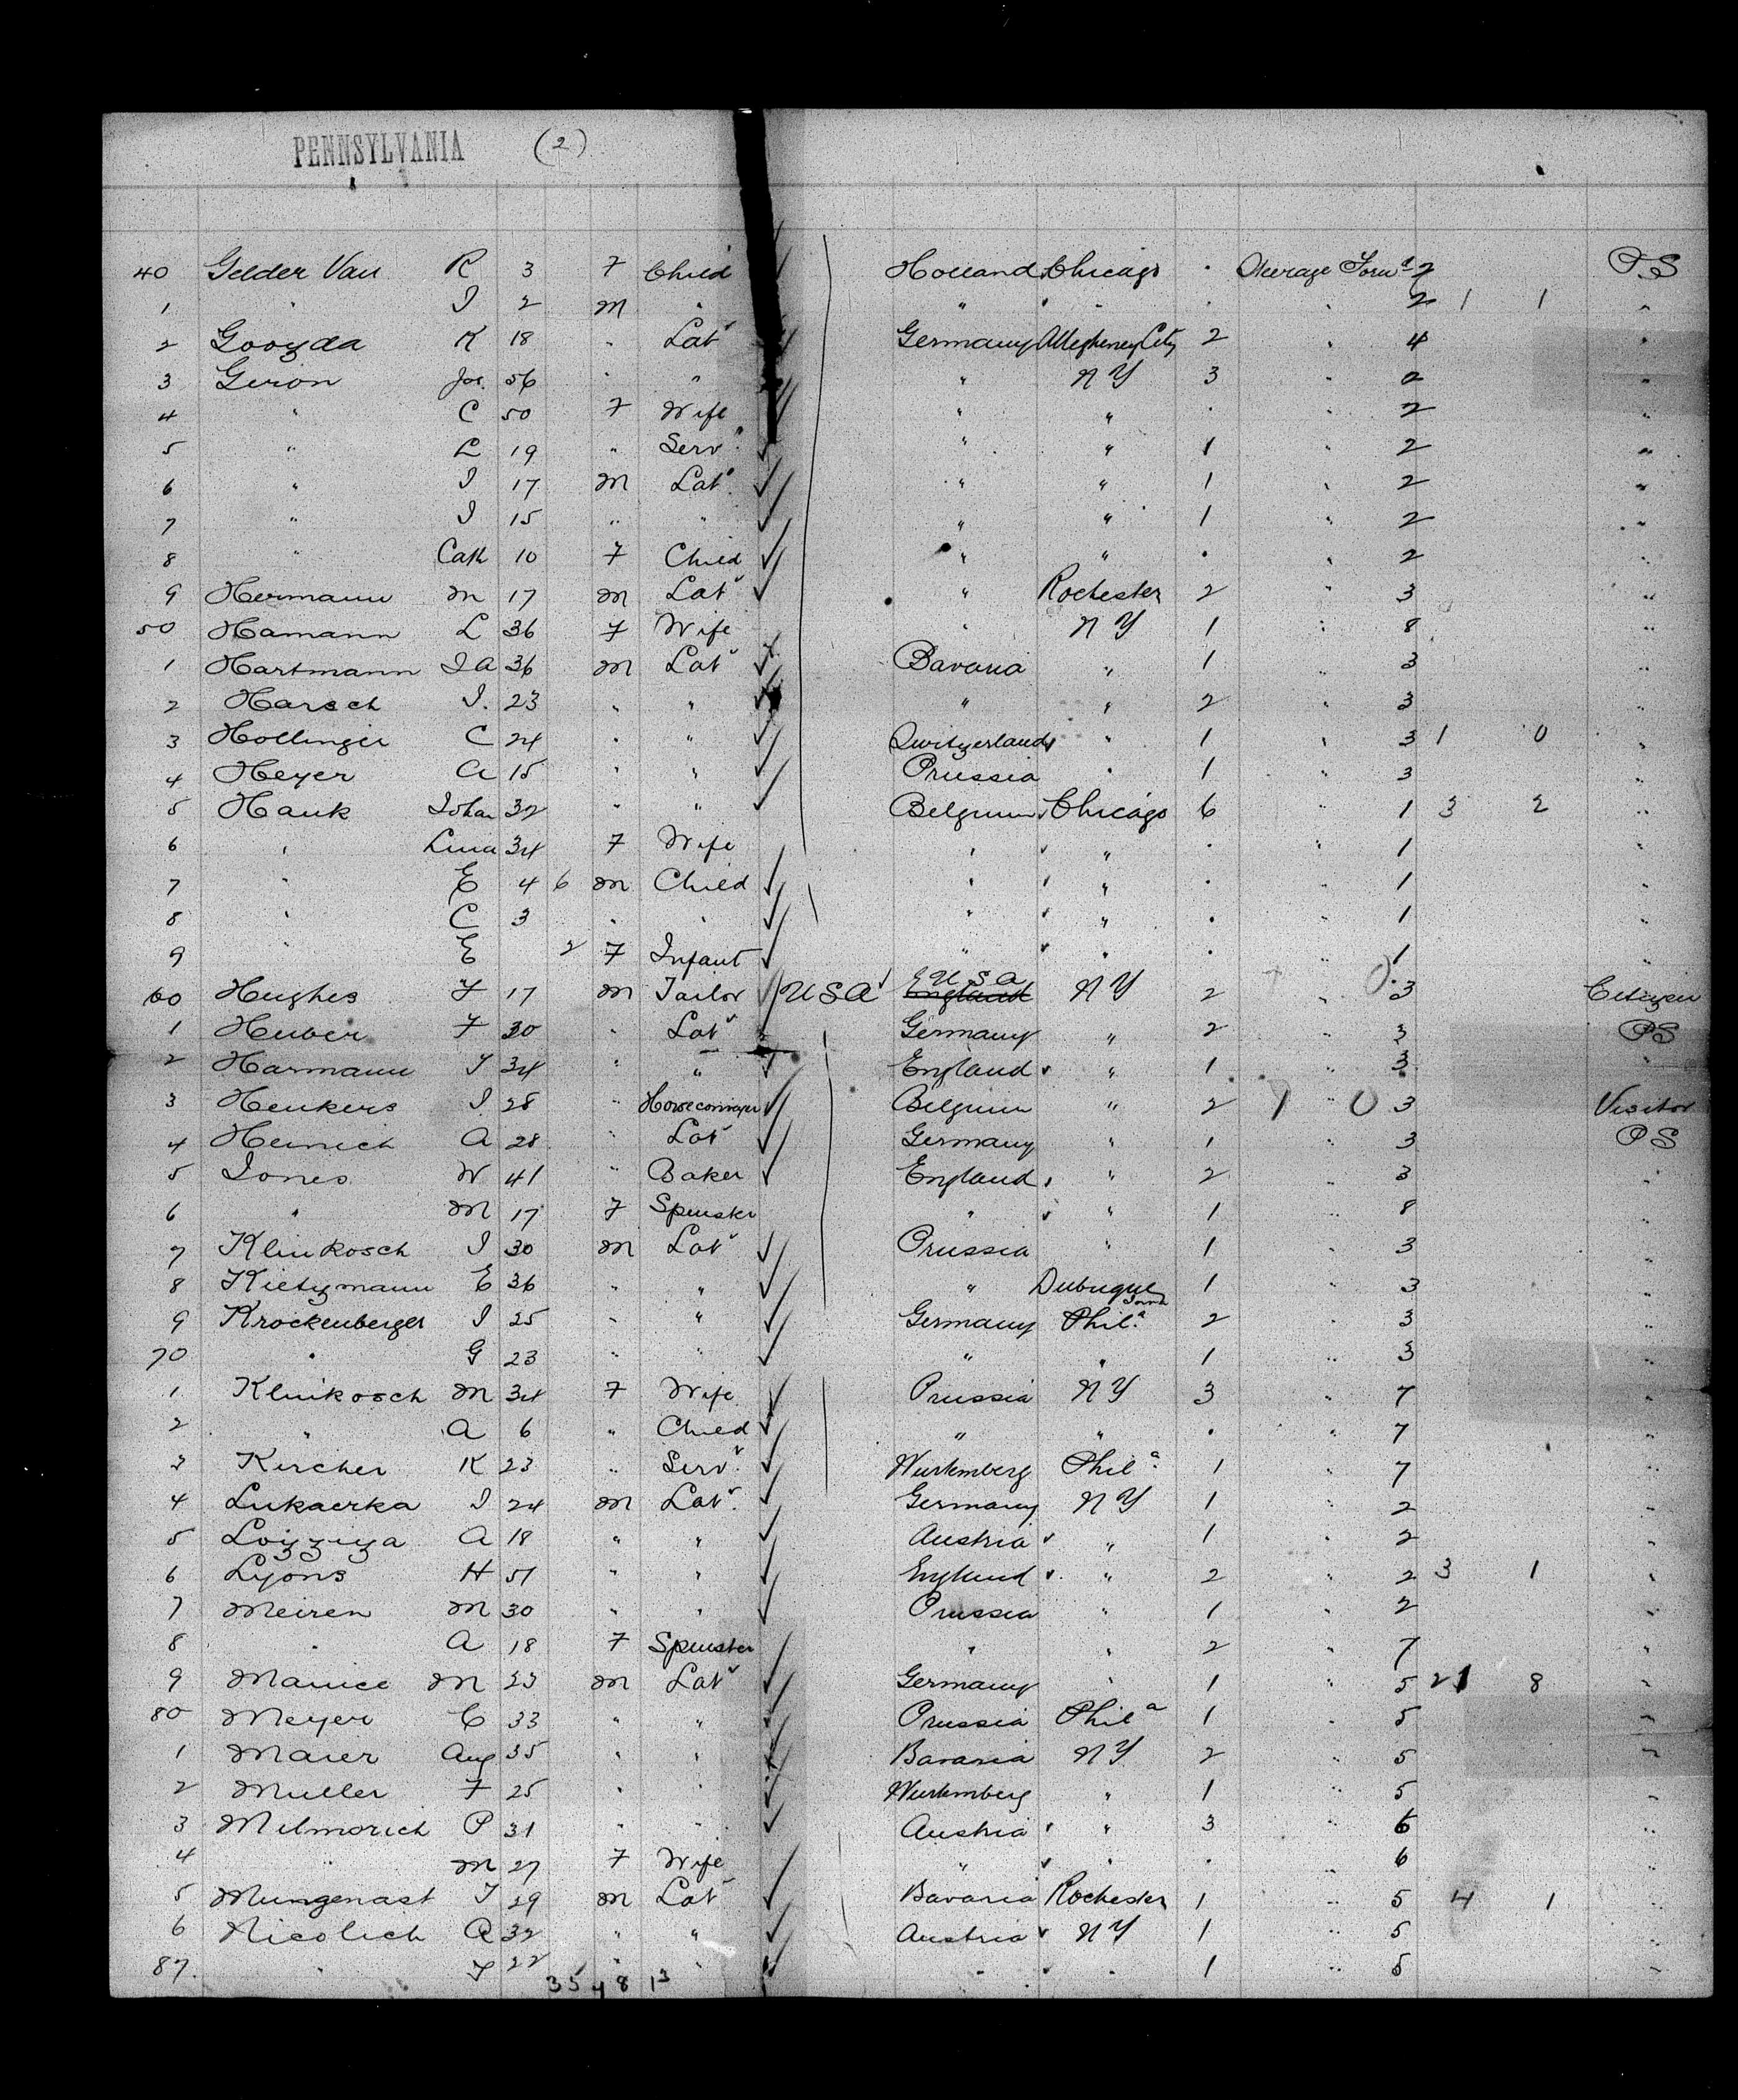 PENNSYLVANIA (2)
40 Gelder Van R 3 F Child Holland Chicago . Steerage Forwd 2 P.S
1 " I 2 M " " " . " 2 1 1 "
2 Gooyda K 18 " Labr Germany Allegheney City 2 " 4 "
3 Geron Jos. 56 " " " N Y 3 " 2 "
4 " C 50 F Wife " " . " 2 "
5 " L 19 " Servt " " 1 " 2 "
6 " I 17 M Labr " " 1 " 2 "
7 " I 15 " " " " 1 " 2 "
8 " Cath 10 F Child " " . " 2 "
9 Hermann M 17 M Labr " Rochester 2 " 3 "
50 Hamann L 36 F Wife " N Y 1 " 8 "
1 Hartmann I A 36 M Labr Bavaria " 1 " 3 "
2 Harsch I. 23 " " " " 2 " 3 "
3 Hollinger C 24 " " Switzerland " 1 " 3 1 0 "
4 Heyer A 15 " " Prussia " 1 " 3 "
5 Hauk Johan 32 " " Belgium Chicago 6 " 1 3 2 "
6 " Lina 34 F Wife " " . " 1 "
7 " E 4 6 M Child " " . " 1 "
8 " C 3 " " " " . " 1 "
9 " E 2 F Infant " " . " 1 "
60 Hughes F 17 M Tailor USA England U S A N Y 2 " 0. 3 Citizen
1 Huber F 30 " Labr Germany " 2 " 3 PS
2 Harmann J 34 " " England " 1 " 3 "
3 Henkers I 28 " Belgium " 2 1 " 0 3 Visitor
4 Heinich A 28 " Labr Germany " 1 " 3 P S
5 Jones W 41 " Baker England " 2 " 3 "
6 " M 17 F Spinster " " 1 " 8 "
7 Klinkosch I 30 M Labr Prussia " 1 " 3 "
8 Kietzmann E 36 " " " Dubuque Iowa 1 " 3 "
9 Krockenberger I 25 " " Germany Phila 2 " 3 "
70 " G 23 " " " " 1 " 3 "
1 Klinkosch M 34 F Wife Prussia N Y 3 " 7 "
2 " A 6 " Child " " . " 7 "
3 Kircher K 23 " Servt Wurtemberg Phila 1 " 7 "
4 Lukacrka I 24 M Labr Germany N Y 1 " 2 "
5 A 18 " " Austria " 1 " 2 "
6 Lyons H 51 " " England " 2 " 2 3 1 "
7 Meiren M 30 " " Prussia " 1 " 2 "
8 " A 18 F Spinster " " 2 " 7 "
9 Manice M 23 M Labr Germany " 1 " 5 21 8 "
80 Meyer C 33 " " Prussia Phila 1 " 5 "
1 Maier Aug 35 " " Bavaria N Y 2 " 5 "
2 Muller F 25 " " Wurtemberg " 1 " 5 "
3 Milmorich P 31 " " Austria " 3 " 6 "
4 " M 27 F Wife " " . " 6 "
5 Mungenast J 29 M Labr Bavaria Rochester 1 " 5 4 1 "
6 Nicolich A 32 " " Austria N Y 1 " 5 "
87. " J 22 " " " " 1 " 5 "
35 4 8 13